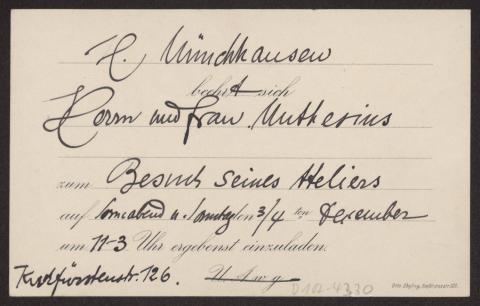 H. Münchhausen
beehrt sich
Herrn und Frau Muthesius
zum Besuch seines Ateliers
auf Sonnabend u. Sonntag den 3/4 ten Dezember
um 11-3 Uhr ergebenst einzuladen.
Kurfürstenstr. 126. U. A. w. g.
D 102-4330